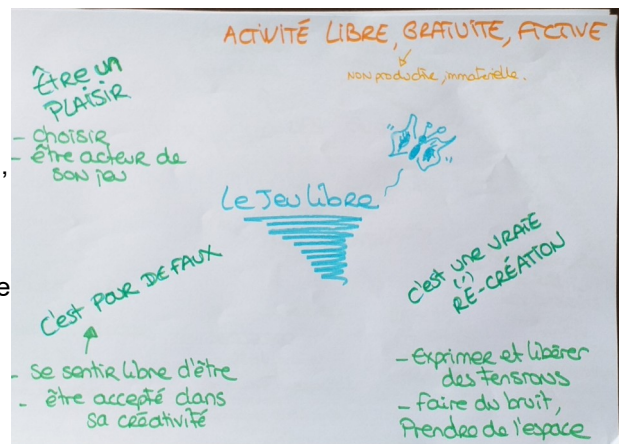 ACTIVITÉ LIBRE, GRATUITE, ACTIVE
NON productive, immatérielle.
Être un
PLAISIR
- choisir
- être acteur de
son jeu
,
Le Jeu Libre
C'est POUR DE FAUX
e
- Se sentir libre d'être
- être accepté dans
sa créativité
C'est UNE VRAIE
(!)
RE-CRÉATION
- Exprimer et libérer
des tensions
- Faire du bruit,
Prendre de l'espace